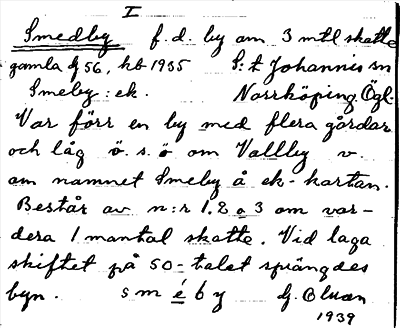 I
Smedby f.d. by om 3 mtl skatte
gamla hj 56, hb 1935 S:t Johannis sn
Smeby : ek. Norrköping Ögl.
Var förr en by med flera gårdar
och låg ö. s. ö om Vallby v.
om namnet Smeby å ek-kartan.
Består av n:r 1, 2 o 3 om var-
dera 1 mantal skatte. Vid laga
skiftet på 50-talet sprängdes
byn. s m é b y G. Olsson
1939